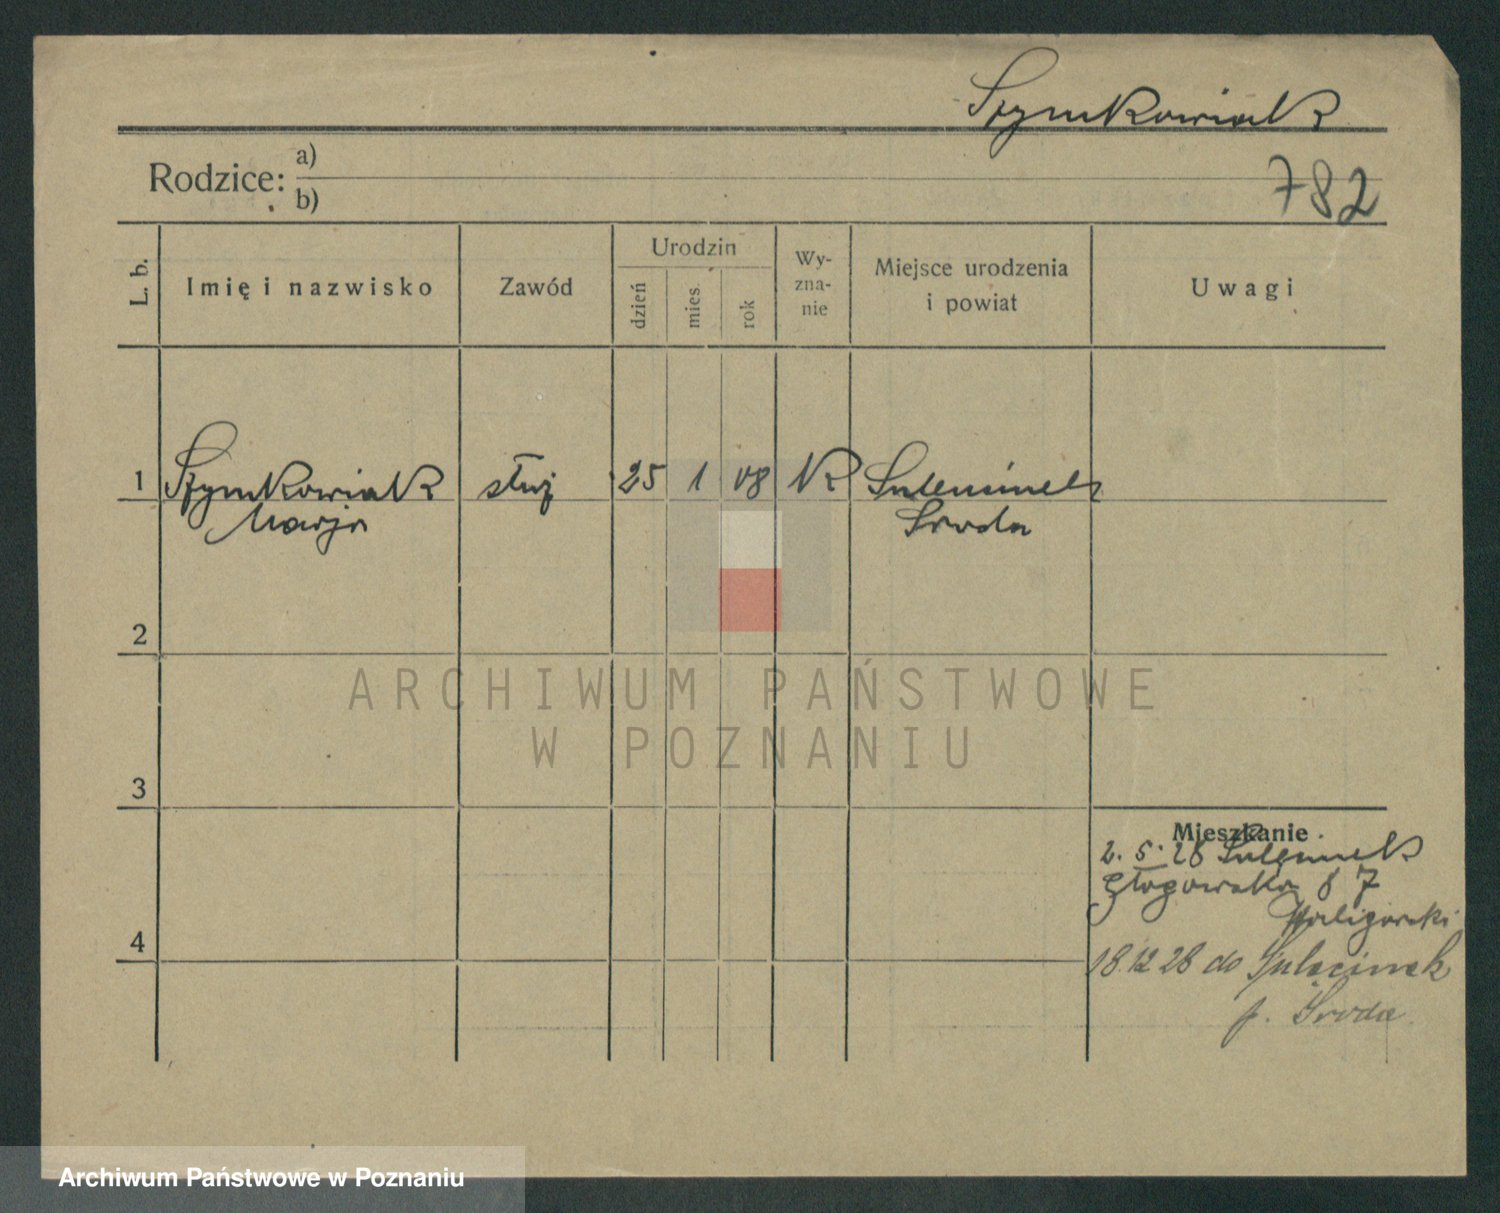 Szymkowiak
Rodzice: a)
b)
782
L. b.
Imię i nazwisko
Zawód
Urodzin
dzień
mies.
rok
Wy-
zna-
nie
Miejsce urodzenia
i powiat
Uwagi
1 Szymkowiak służ 25 1 08 rk
Marja Środa
2
ARCHIWUM PAŃSTWOWE
W POZNANIU
3
Mieszkanie
2. 5. 28
Głogowska 87
Waligórski
4
18.12 28 do Sulęcinek
p. Środa
Archiwum Państwowe w Poznaniu